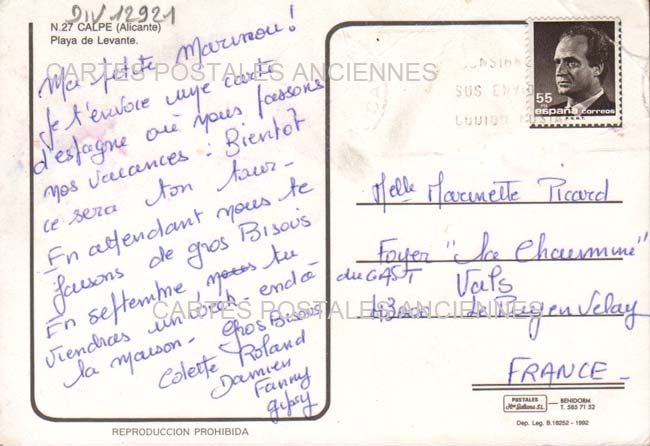 DIV 12921
N.27 CALPE (Alicante)
Playa de Levante.
Ma petite Marinou!
Je t'envoie une carte
d'espagne où nous passons
nos vacances - Bientôt
ce sera ton tour -
En attendant nous te
faisons de gros Bisois
En septembre nous tu
viendras un week-end à
la maison - Gros Bisous
Colette Roland
Damien
Fanny
Gipsy
CARTES POSTALES ANCIENNES
CARTES POSTALES ANCIENNES
SUS
55
españa correos
Melle Marinette Picard
Foyer "La Chaumine"
du GAST Vals
43000 Le Puy en Velay
FRANCE -
POSTALES
BENIDORM
T. 585 71 52
Dep. Leg. B.16252 - 1992
REPRODUCCION PROHIBIDA